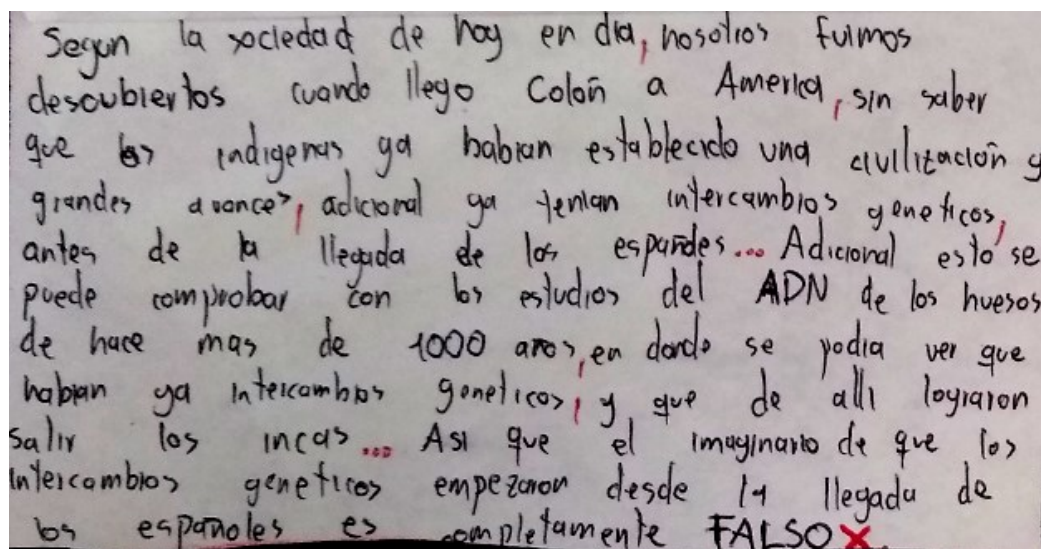 Segun la sociedad de hoy en dia, nosotros fuimos
descubiertos cuando llego Colón a America, sin saber
que los indigenas ya habian establecido una civilización y
grandes avances, adicional ya tenian intercambios geneticos,
antes de la llegada de los españoles... Adicional esto se
puede comprobar con los estudios del ADN de los huesos
de hace mas de 1000 años, en donde se podia ver que
habian ya intercambios geneticos, y que de alli lograron
salir los incas... Asi que el imaginario de que los
intercambios geneticos empezaron desde la llegada de
los españoles es completamente FALSO X